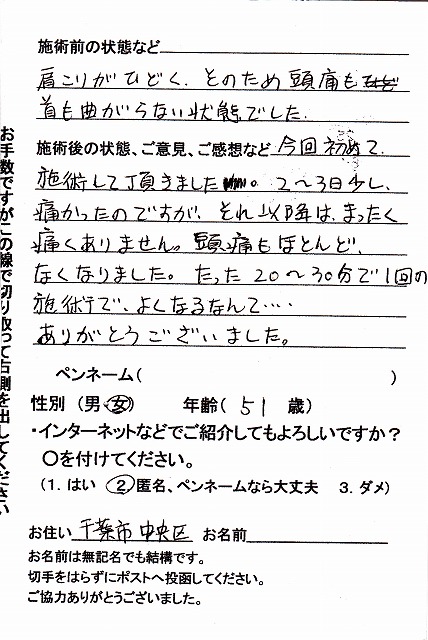 施術前の状態など
肩こりがひどく、そのため頭痛も
首も曲がらない状態でした
施術後の状態、ご意見、ご感想など 今回初めて
施術して頂きました。2〜3日少し、
痛かったのですが、それ以降は、まったく
痛くありません。頭痛もほとんど、
なくなりました。たった20〜30分で1回の
施術で、よくなるなんて・・・
ありがとうございました。
ペンネーム( )
性別 (男・女) 年齢( 51 歳)
・インターネットなどでご紹介してもよろしいですか?
○を付けてください。
(1. はい ②匿名、ペンネームなら大丈夫 3. ダメ)
お住い 千葉市中央区 お名前
お名前は無記名でも結構です。
切手をはらずにポストへ投函してください。
ご協力ありがとうございました。
お手数ですがこの線で切り取って右側を出してください